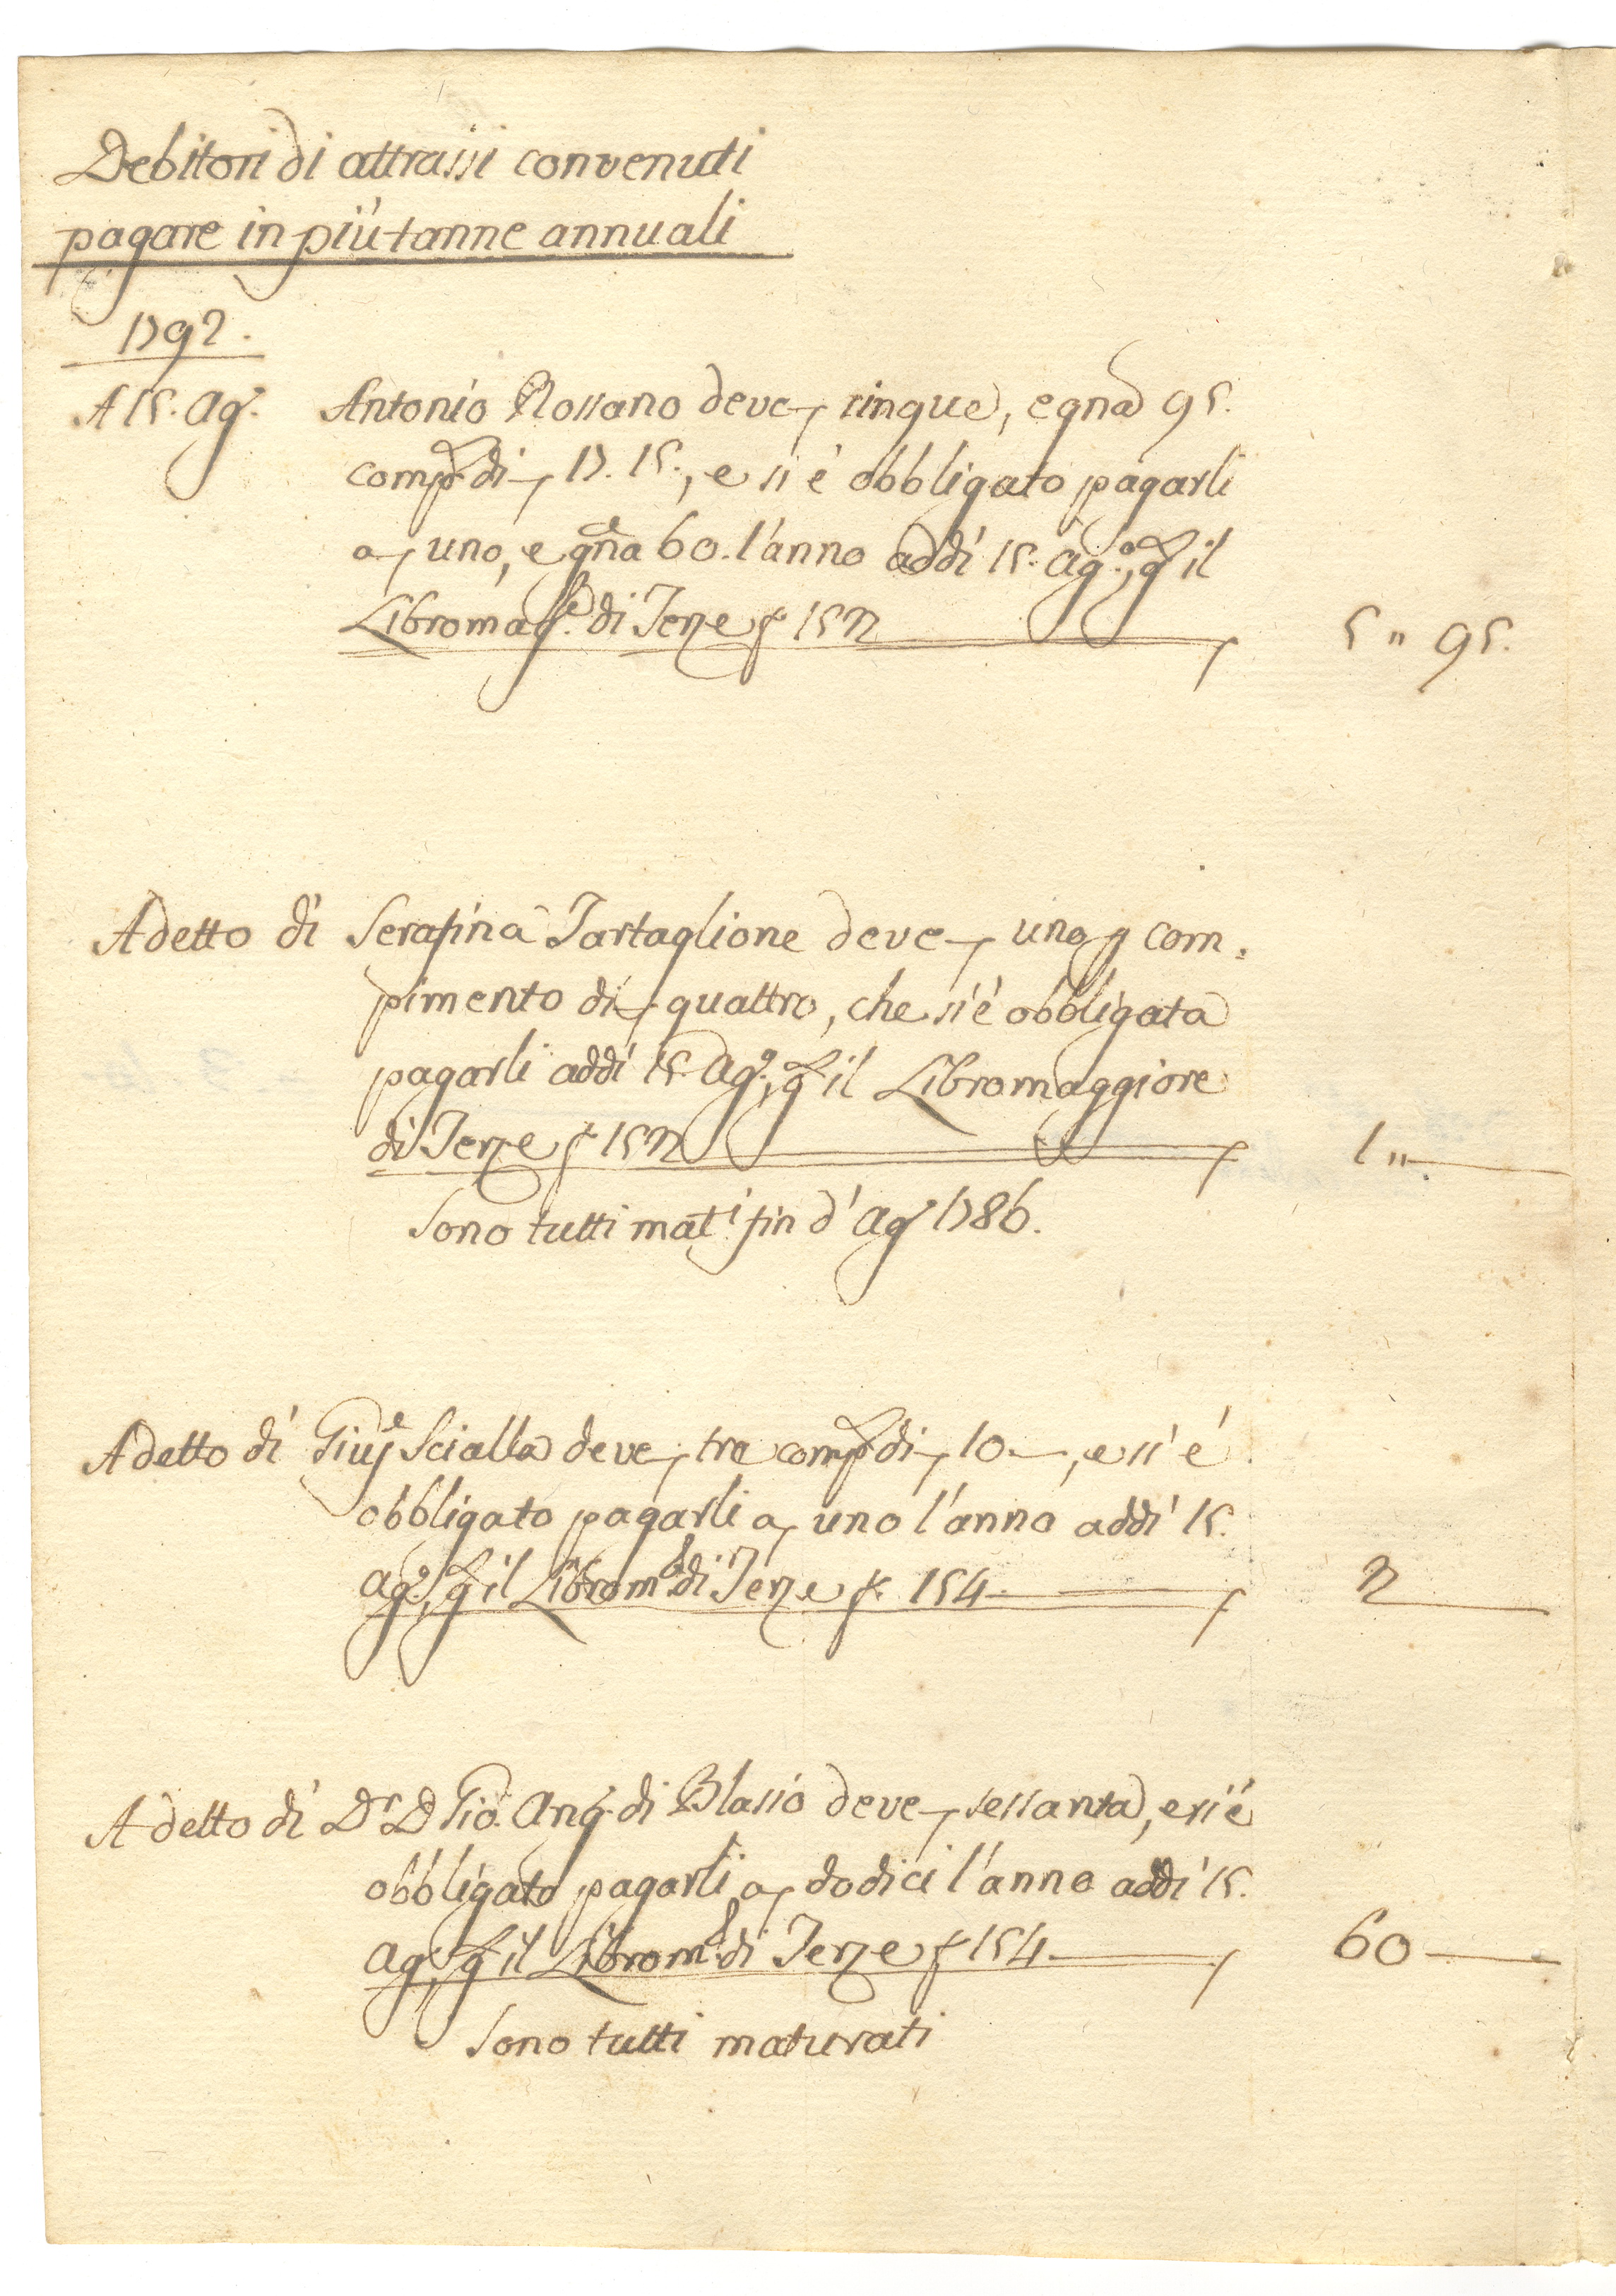 Debitori di attrassi convenuti
pagare in più tanne annuali
1792.
A 15. Ag.º Antonio Rossano deve cinque, e gna 95.
comp.º di 17. 15., e si è obbligato pagarli
a uno, e gna 60. l'anno addì 15. Ag.º, p il
Libromag.e di Terze f 153 5 " 95.
A detto dì Serafina Tartaglione deve uno p com=
pimento di quattro, che si è obbligata
pagarli addì 15. Ag.º, p il Libromaggiore
di Terze f 153 1 "
Sono tutti mat.i fin d' Ag.º 1786.
A detto dì Gius.e Scialla deve tre comp.º di 10—, e si è
obbligato pagarli a uno l'anno addì 15.
Ag.º, p il Librom.e di Terze f. 154 3
A detto dì D.r D Gio. Ang. di Blasio deve sessanta, e si è
obbligato pagarli a dodici l'anno addì 15.
Ag.º, p il Librom.e di Terze f 154 60
Sono tutti maturati